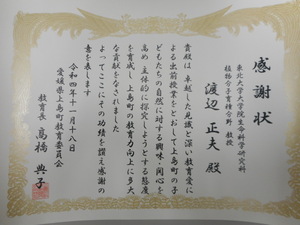 感謝状
東北大学大学院生命科学研究科
植物分子育種分野 教授
渡辺 正夫 殿
貴殿は 卓越した見識と深い教育愛に
よる出前授業をとおして上島町の子
どもたちの自然に対する興味・関心を
高め 主体的に探究しようとする態度
を育成し 上島町の教育力向上に多大
な貢献をなされました
よってここにその功績を讃え感謝の
意を表します
令和四年十一月十八日
愛媛県上島町教育委員会
教育長 髙橋 典子